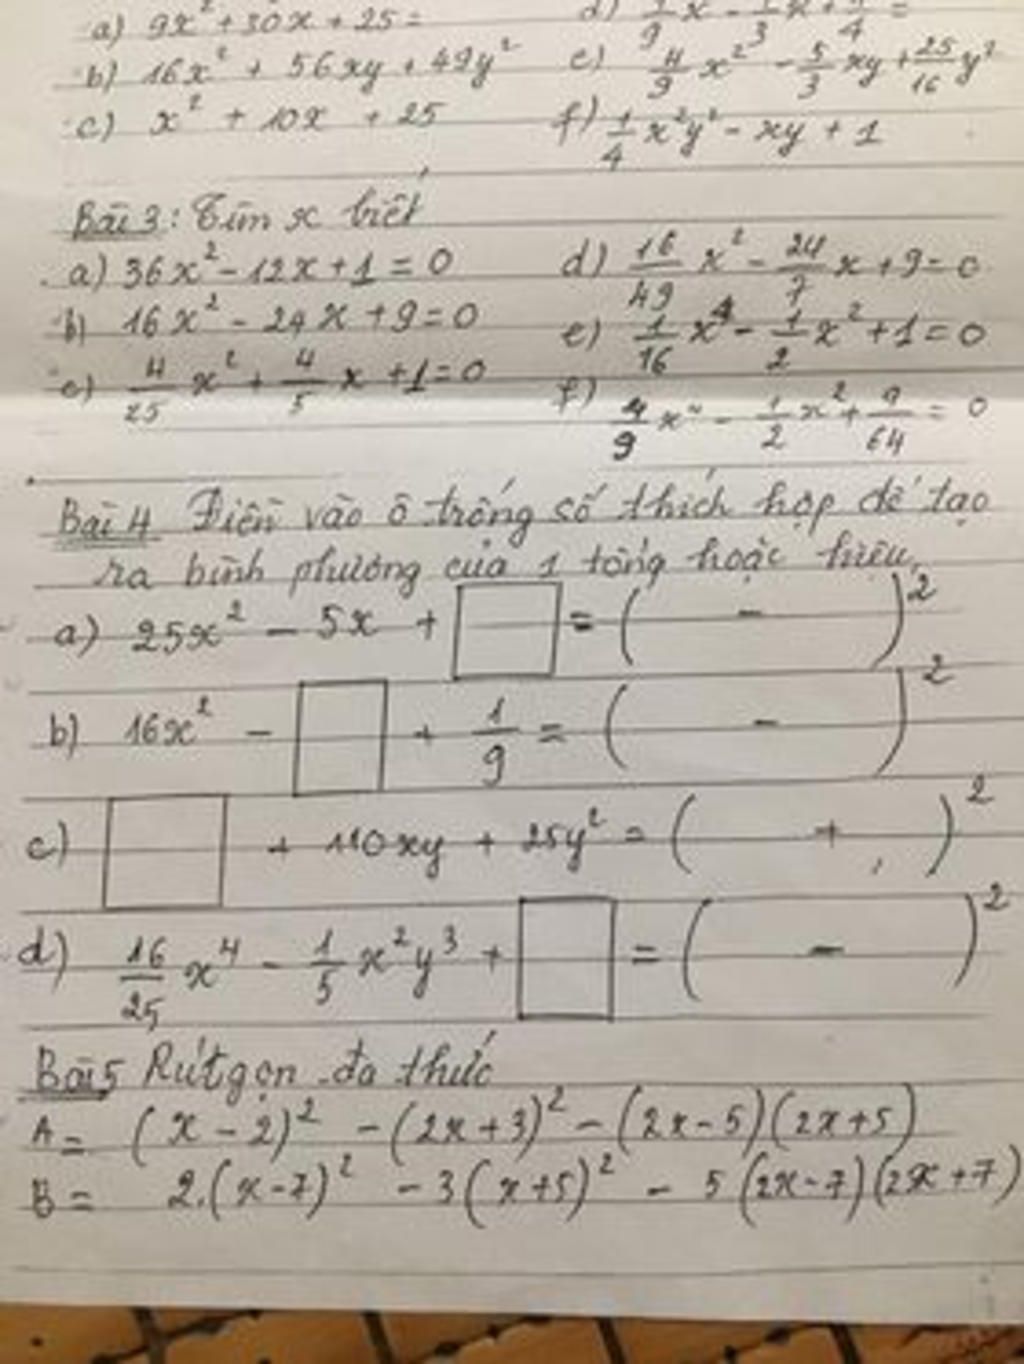 a) 9x² + 30x + 25 =
b) 16x² + 56xy + 49y² e) 4/9 x² - 5/3 xy + 25/16 y²
c) x² + 10x + 25 f) 1/4 x²y² - xy + 1
Bài 3: Tìm x biết
a) 36x² - 12x + 1 = 0 d) 16/49 x² - 24/7 x + 9 = 0
b) 16x² - 24x + 9 = 0 e) 1/16 x⁴ - 1/2 x² + 1 = 0
c) 4/25 x² + 4/5 x + 1 = 0 f) 4/9 x⁴ - 1/2 x² + 9/64 = 0
Bài 4 Điền vào ô trống số thích hợp để tạo
ra bình phương của 1 tổng hoặc hiệu,
a) 25x² - 5x + □ = ( - )²
b) 16x² - □ + 1/9 = ( - )²
c) □ + 110xy + 25y² = ( + )²
d) 16/25 x⁴ - 1/5 x²y³ + □ = ( - )²
Bài 5 Rút gọn đa thức
A = (x - 2)² - (2x + 3)² - (2x - 5)(2x + 5)
B = 2.(x - 7)² - 3(x + 5)² - 5(2x - 7)(2x + 7)